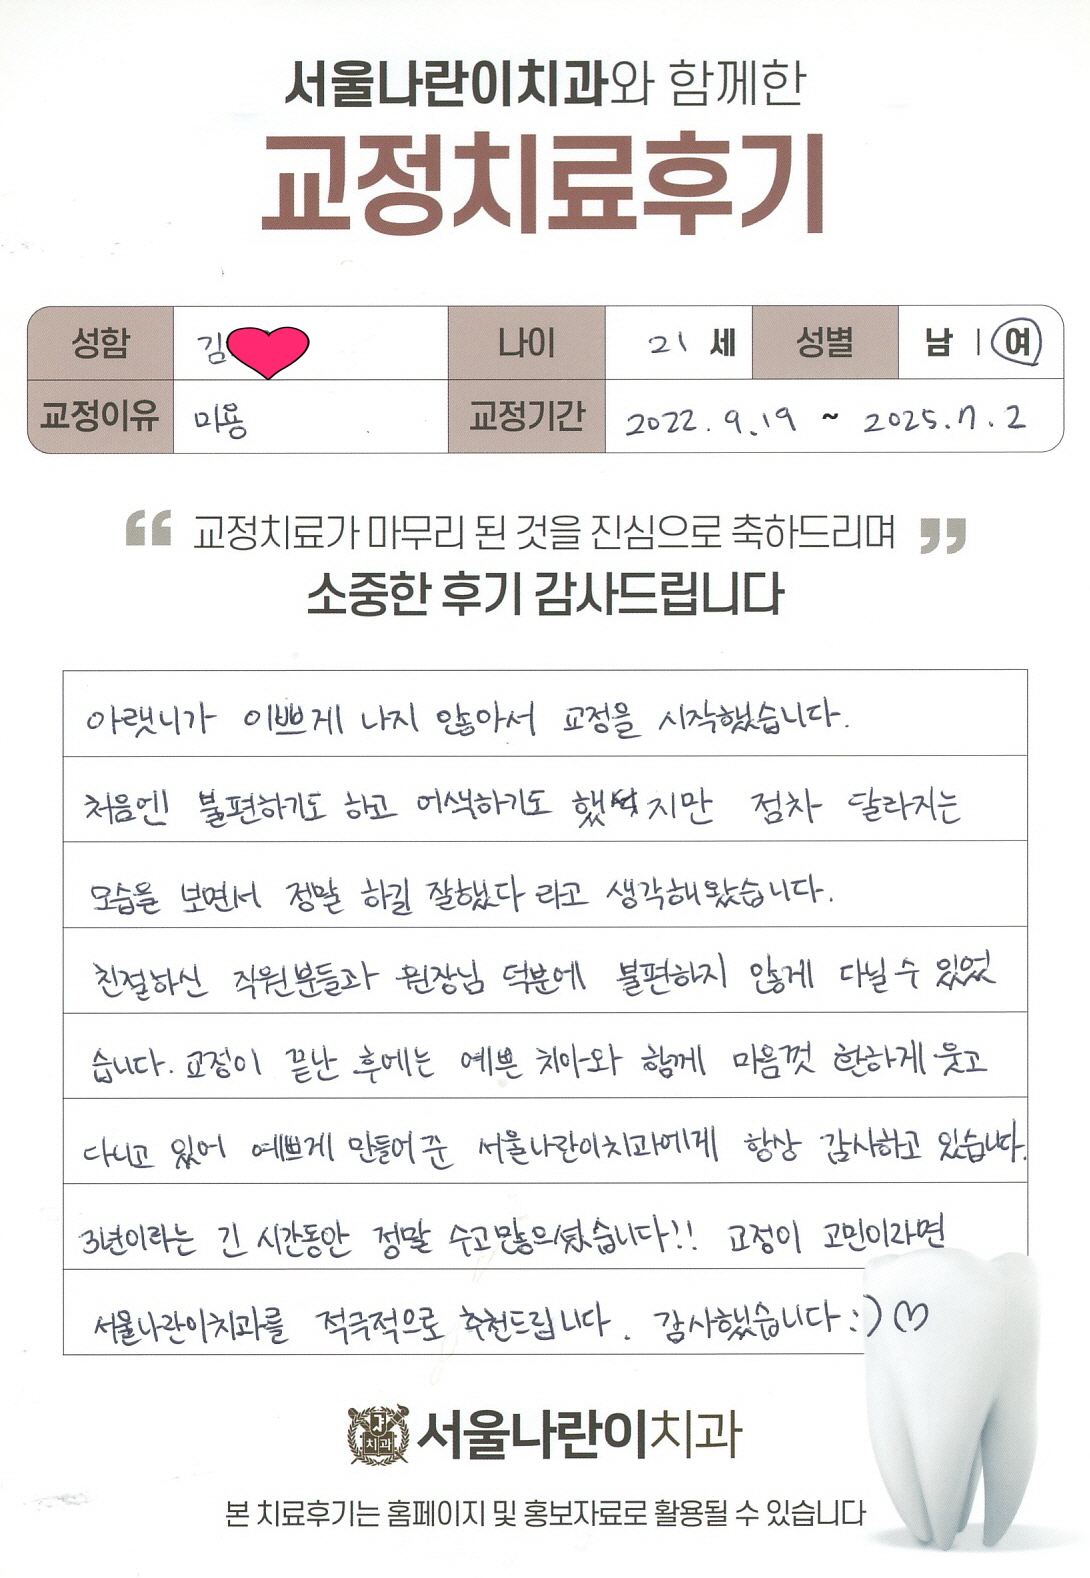 서울나란이치과와 함께한
교정치료후기
성함 김 나이 21 세 성별 남 | 여
교정이유 미용 교정기간 2022. 9. 19 ~ 2025. 7. 2
“ 교정치료가 마무리 된 것을 진심으로 축하드리며 ”
소중한 후기 감사드립니다
아랫니가 이쁘게 나지 않아서 교정을 시작했습니다.
처음엔 불편하기도 하고 어색하기도 했지만 점차 달라지는
모습을 보면서 정말 하길 잘했다 라고 생각해왔습니다.
친절하신 직원분들과 원장님 덕분에 불편하지 않게 다닐 수 있었
습니다. 교정이 끝난 후에는 예쁜 치아와 함께 마음껏 환하게 웃고
다니고 있어 예쁘게 만들어 준 서울나란이치과에게 항상 감사하고 있습니다.
3년이라는 긴 시간동안 정말 수고많으셨습니다!! 교정이 고민이라면
서울나란이치과를 적극적으로 추천드립니다. 감사했습니다 :) ♡
치과 서울나란이치과
본 치료후기는 홈페이지 및 홍보자료로 활용될 수 있습니다